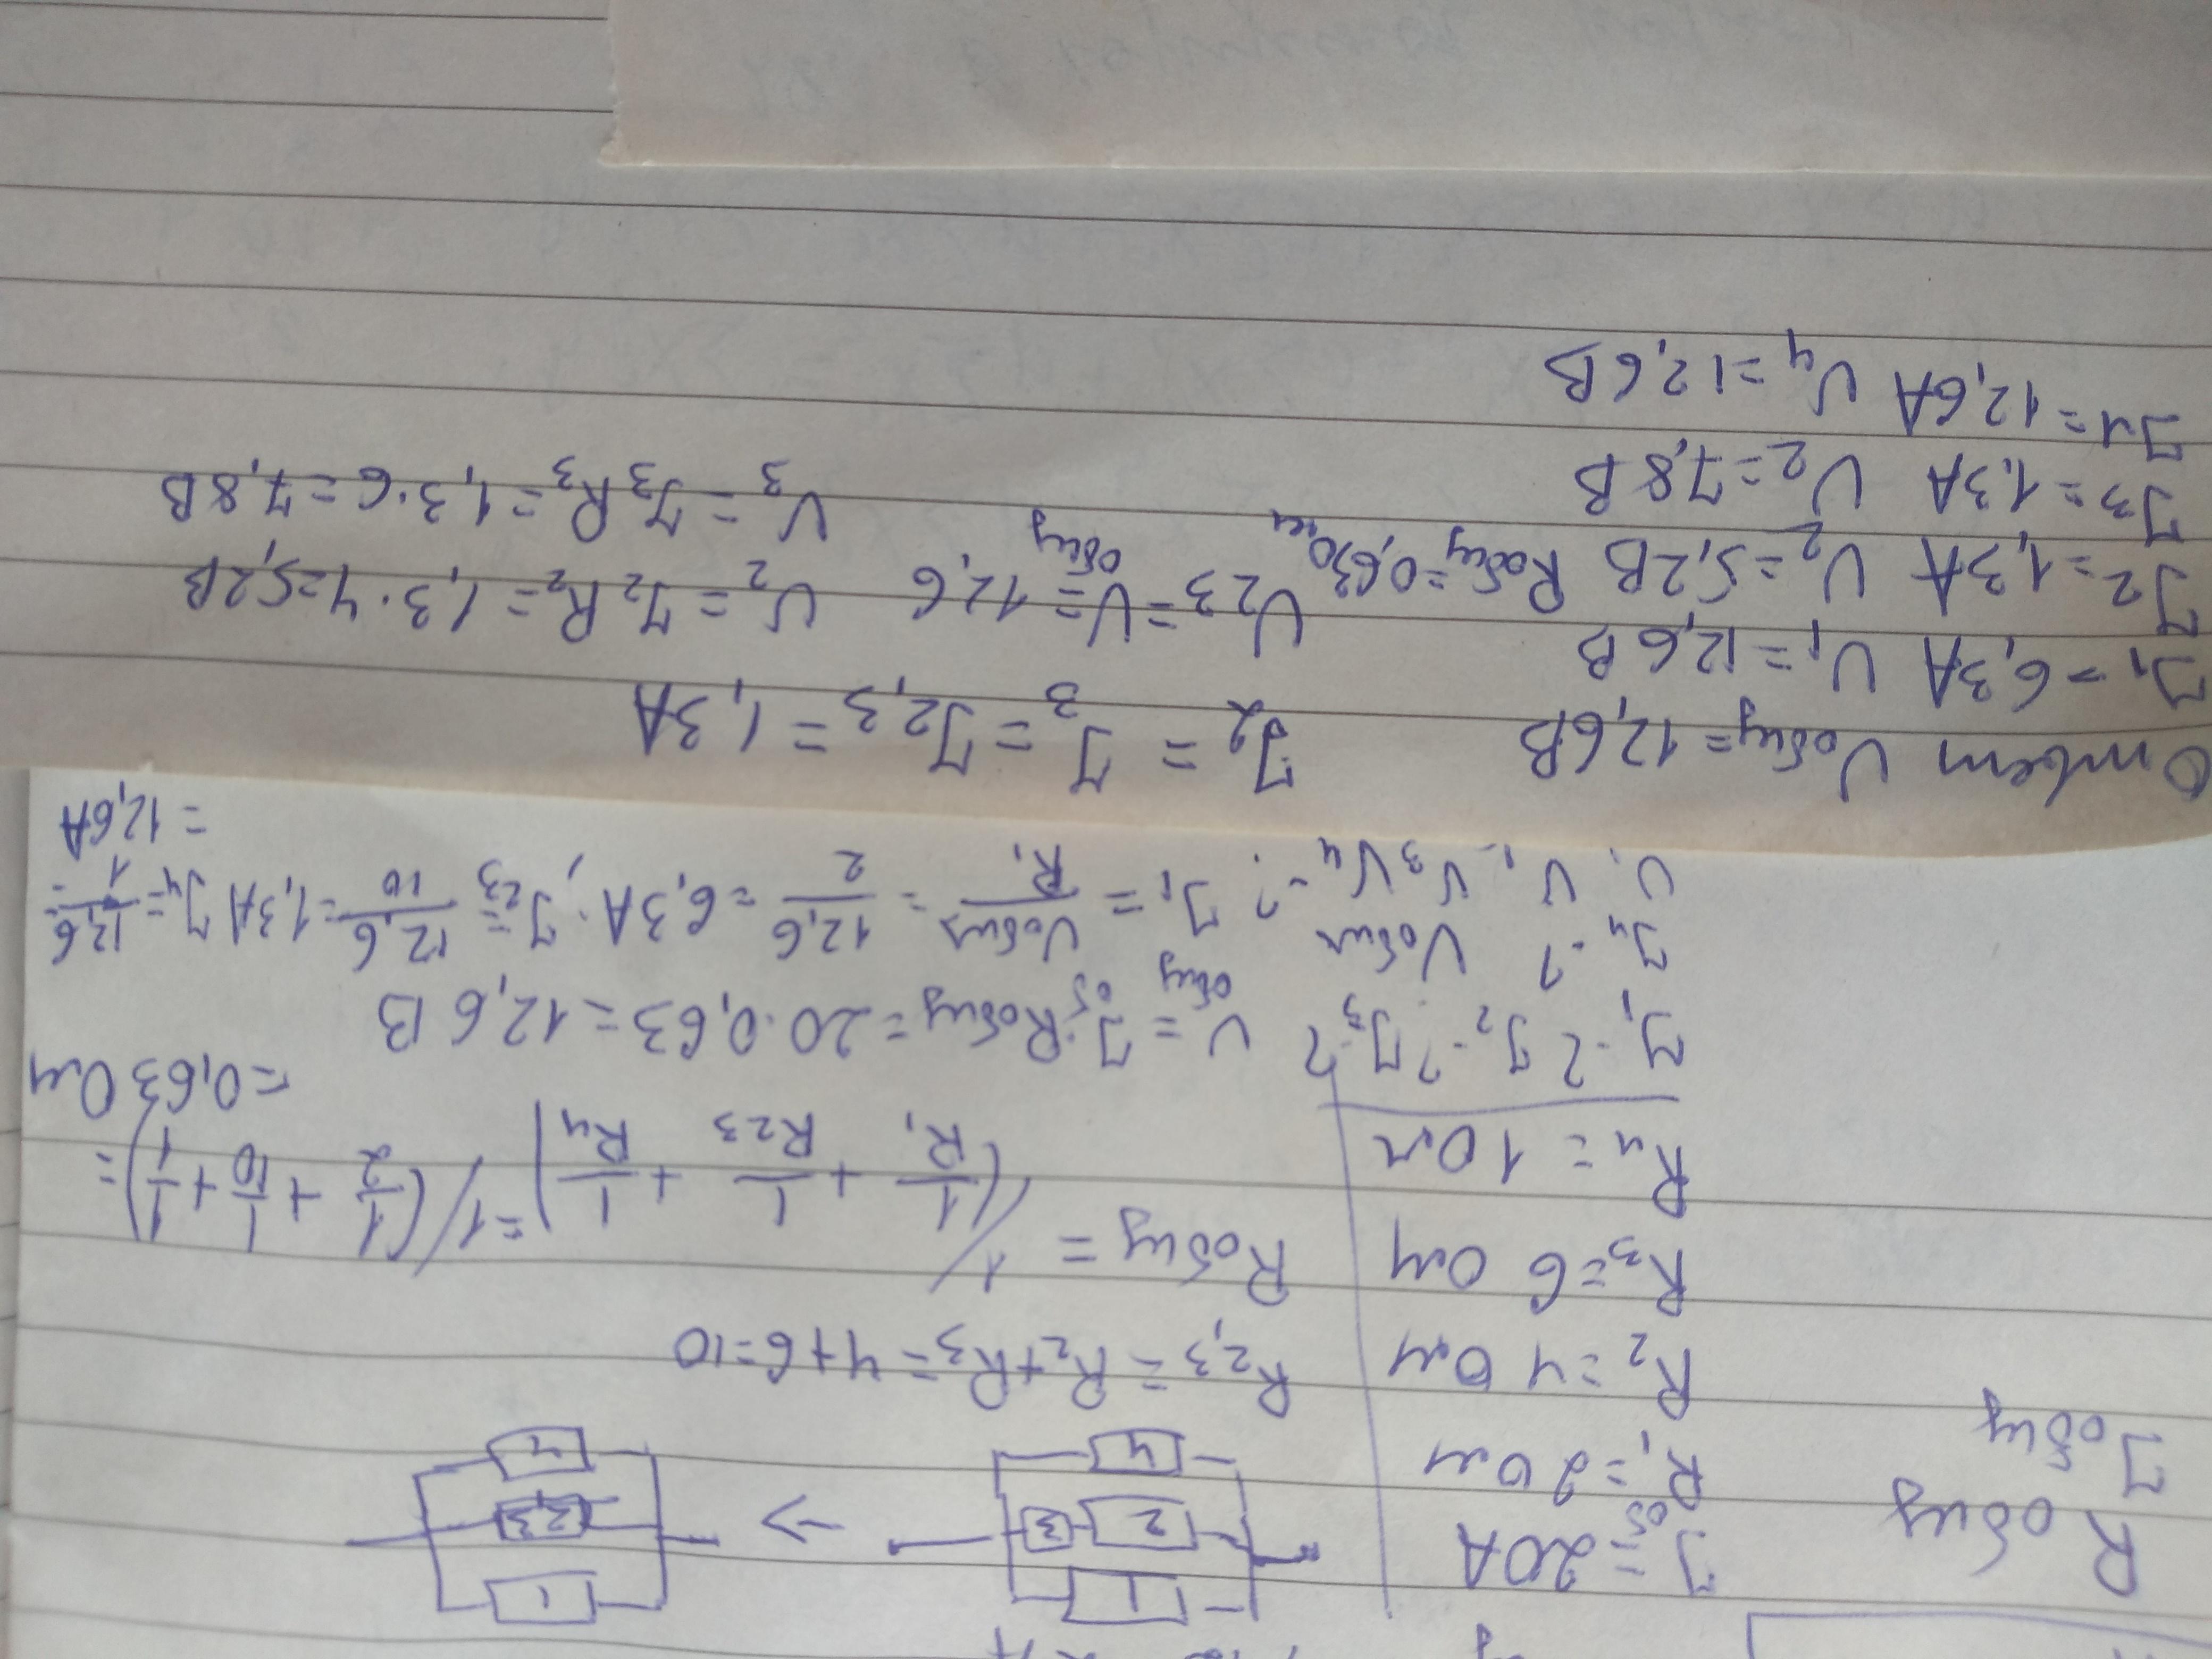 Rобщ
Iобщ
Iоб=20А
R₁=2Ом
R₂=4 Ом
R₃=6 Ом
R₄=1Ом
I₁-? I₂-? I₃-?
I₄-? Uобщ
U₁ U₂ U₃ U₄-?
1
2 3
4
=>
1
23
4
R2,3=R₂+R₃=4+6=10
Rобщ = 1/(1/R₁ + 1/R23 + 1/R₄)=1/(1/2+1/10+1/1)=
=0,63 Ом
Uобщ=Iоб·Rобщ=20·0,63=12,6 В
I₁=Uобщ/R₁=12,6/2=6,3А; I23=12,6/10=1,3А I₄=12,6/1=
=12,6А
I2 = I3 = I2,3 = 1,3А
U23=Uобщ=12,6 U₂=I₂R₂=1,3·4=5,2В
U3=I₃R₃=1,3·6=7,8В
Ответ Uобщ=12,6В
I₁=6,3А U₁=12,6В
I₂=1,3А U₂=5,2В Rобщ=0,63Ом
I₃=1,3А U₂=7,8В
I4=12,6А U₄=12,6В